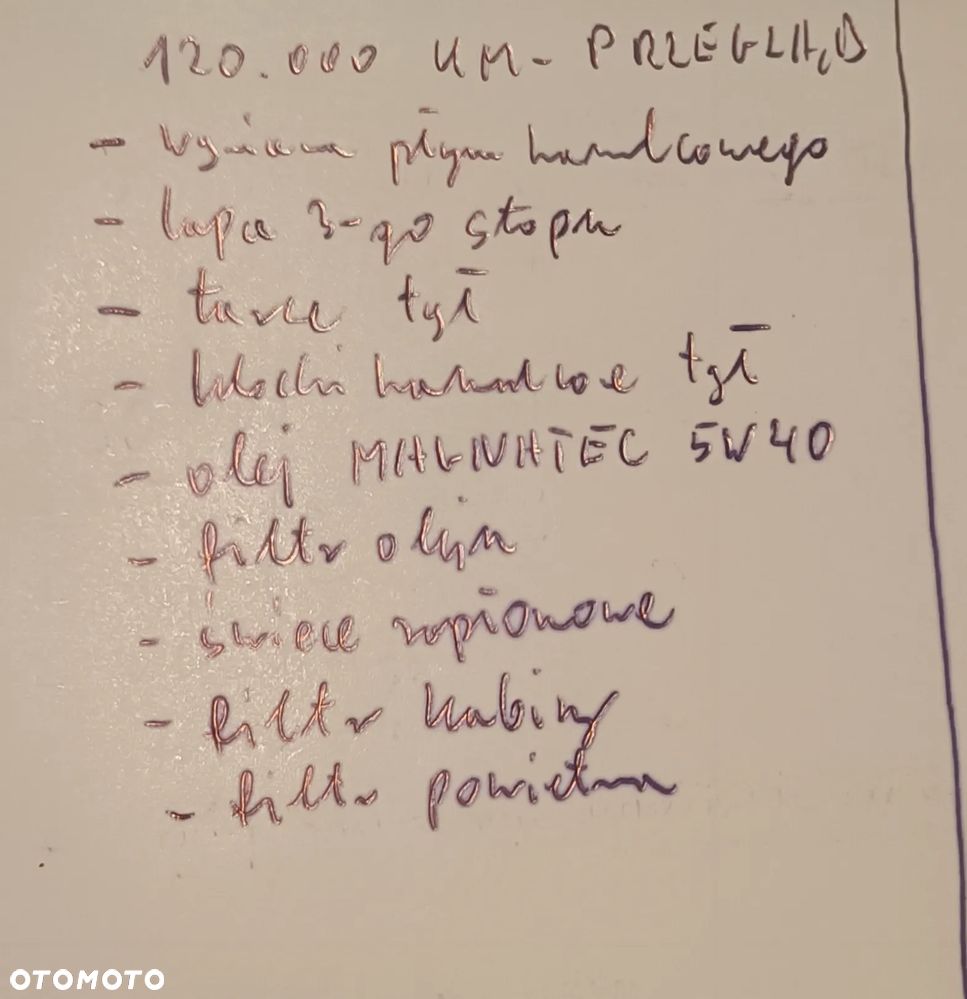 120.000 KM - PRZEGLĄD
- wymiana płynu hamulcowego
- lapa 3-go stopu
- tarcze tył
- klocki hamulcowe tył
- olej MAGNATEC 5W40
- filtr oleju
- świece zapłonowe
- filtr kabiny
- filtr powietrza
OTOMOTO